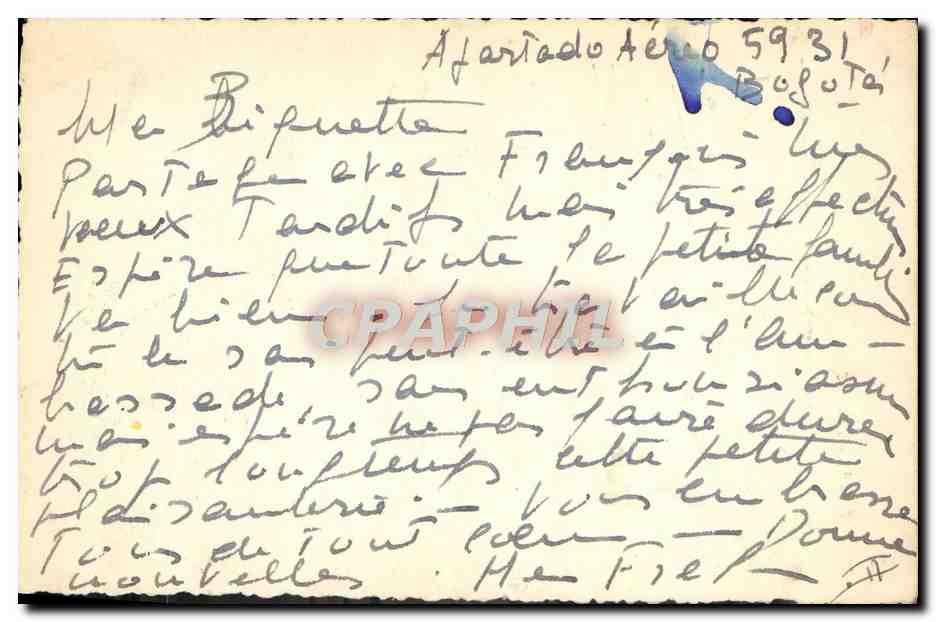 Apartado Aéreo 59.31
Bogotá
Ma Biquette
Partage avec François mes
voeux Tardifs mais très affectueux
Espère que toute la petite famille
va bien. Je travaille
bien sans peut-être à l'am-
bassade, sans enthousiasme
mais espère ne pas faire durer
trop longtemps cette petite
plaisanterie - Vous embrasse
Tous de Tout coeur - Donne
nouvelles.
CPAPHIL